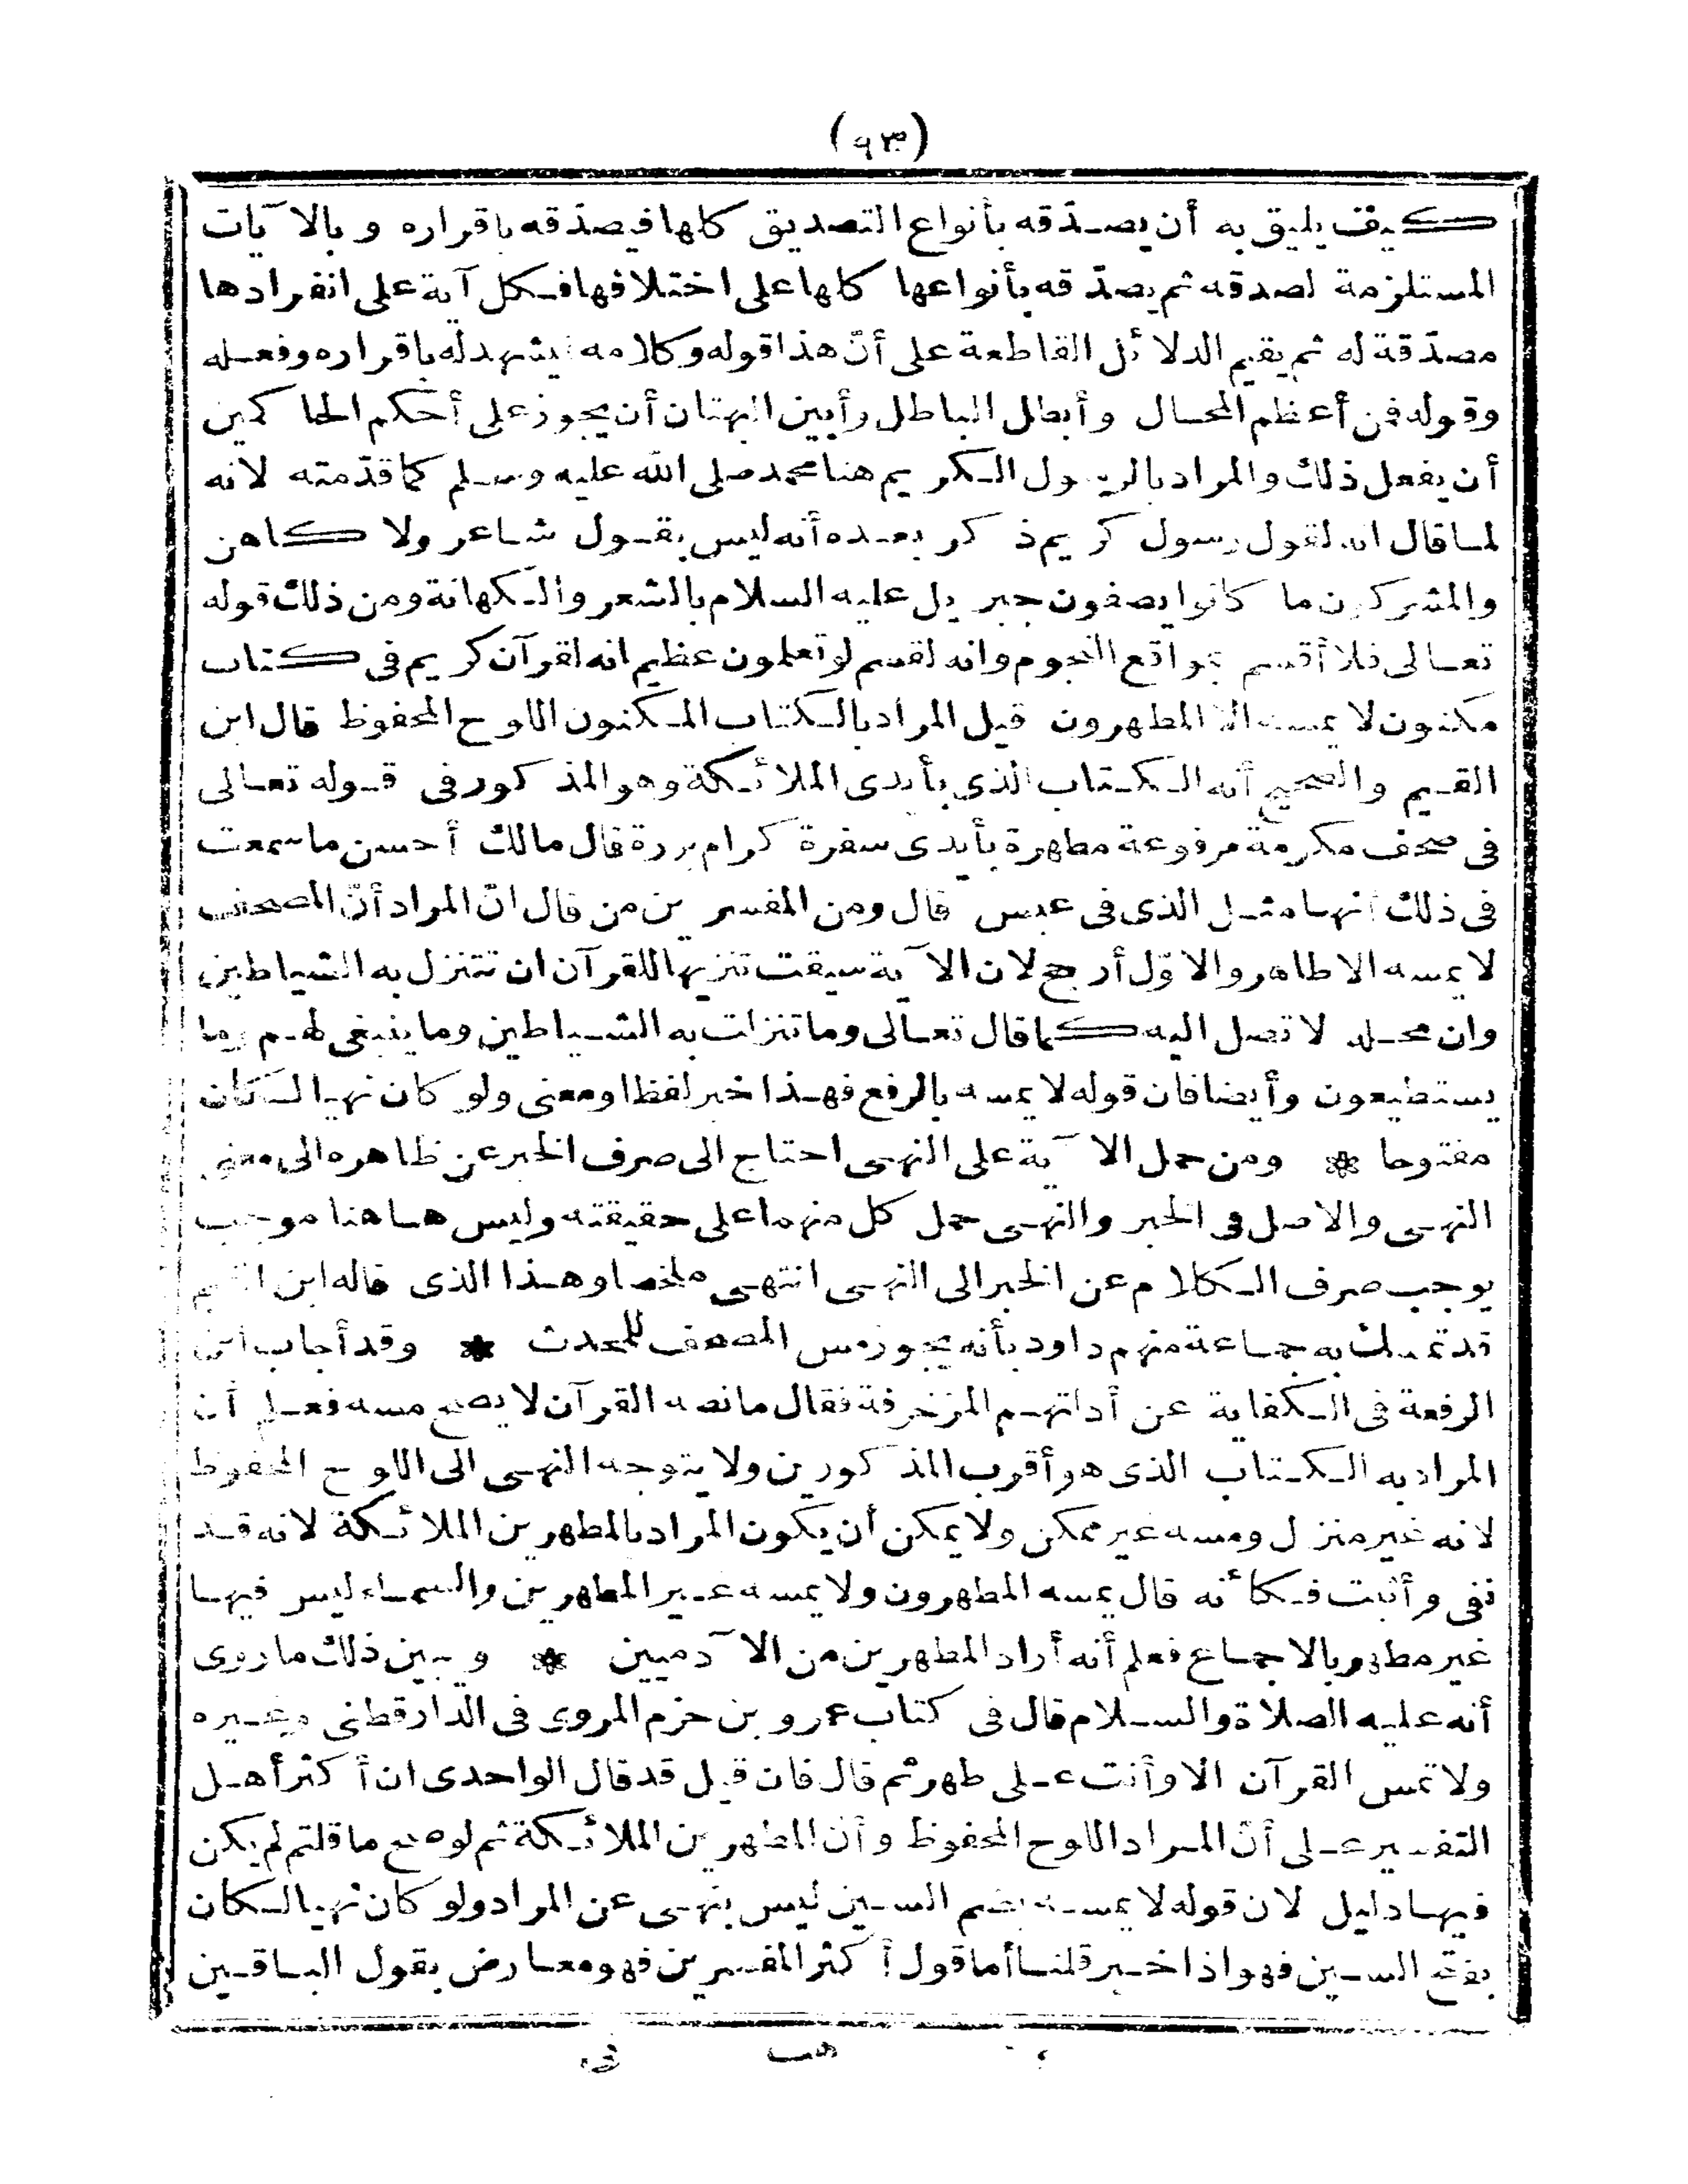 (٩٣)
كيف يليق به أن يصدّقه بأنواع التصديق كلها فيصدّقه باقراره وبالآيات
المستلزمة لصدقه ثم يصدّقه بأنواعها كلها على اختلافها فكل آية على انفرادها
مصدّقة له ثم يقيم الدلائل القاطعة على أنّ هذا قوله وكلامه يشهد له باقراره وفعله
وقوله فمن أعظم المحال وأبطل الباطل وأبين البهتان أن يجوز على أحكم الحاكمين
أن يفعل ذلك والمراد بالرسول الكريم هنا محمد صلى الله عليه وسلم كما قدّمته لانه
لما قال انه لقول رسول كريم ذكر بعده أنه ليس بقول شاعر ولا كاهن
والمشركون ما كانوا يصفون جبريل عليه السلام بالشعر والكهانة ومن ذلك قوله
تعالى فلا أقسم بمواقع النجوم وانه لقسم لو تعلمون عظيم انه لقرآن كريم فى كتاب
مكنون لا يمسه الا المطهرون قيل المراد بالكتاب المكنون اللوح المحفوظ قال ابن
القيم والصحيح أنه الكتاب الذى بأيدى الملائكة وهو المذكور فى قوله تعالى
فى صحف مكرمة مرفوعة مطهرة بأيدى سفرة كرام بررة قال مالك أحسن ما سمعت
فى ذلك انها مثل الذى فى عبس قال ومن المفسرين من قال انّ المراد أنّ المصحف
لا يمسه الا طاهر والاوّل أرجح لان الآية سيقت تنزيها للقرآن ان تتنزل به الشياطين
وان محله لا تصل اليه كما قال تعالى وما تنزلت به الشياطين وما ينبغى لهم وما
يستطيعون وأيضا فان قوله لا يمسه بالرفع فهذا خبر لفظا ومعنى ولو كان نهيا لكان
مفتوحا * ومن حمل الآية على النهى احتاج الى صرف الخبر عن ظاهره الى معنى
النهى والاصل فى الخبر والنهى حمل كل منهما على حقيقته وليس ها هنا موجب
يوجب صرف الكلام عن الخبر الى النهى انتهى ملخصا وهذا الذى قاله ابن القيم
قد تمسك به جماعة منهم داود بأنه يجوز مس المصحف للمحدث * وقد أجاب ابن
الرفعة فى الكفاية عن أدلتهم المزخرفة فقال ما نصه القرآن لا يصح مسه فعلم أن
المراد به الكتاب الذى هو أقرب المذكورين ولا يتوجه النهى الى اللوح المحفوظ
لانه غير منزل ومسه غير ممكن ولا يمكن أن يكون المراد بالمطهرين الملائكة لانه قد
نفى وأثبت فكأنه قال يمسه المطهرون ولا يمسه غير المطهرين والسماء ليس فيها
غير مطهر بالاجماع فعلم أنه أراد المطهرين من الآدميين * ويبين ذلك ما روى
أنه عليه الصلاة والسلام قال فى كتاب عمرو بن حزم المروى فى الدارقطنى وغيره
ولا تمس القرآن الا وأنت على طهر ثم قال فان قيل قد قال الواحدى ان أكثر أهل
التفسير على أنّ المراد اللوح المحفوظ وأن المطهرين الملائكة ثم لو صح ما قلتم لم يكن
فيها دليل لان قوله لا يمسه بضم السين ليس بنهى عن المراد ولو كان نهيا لكان
بفتح السين فهو اذا خبر قلنا أما قول أكثر المفسرين فهو معارض بقول الباقين
هب